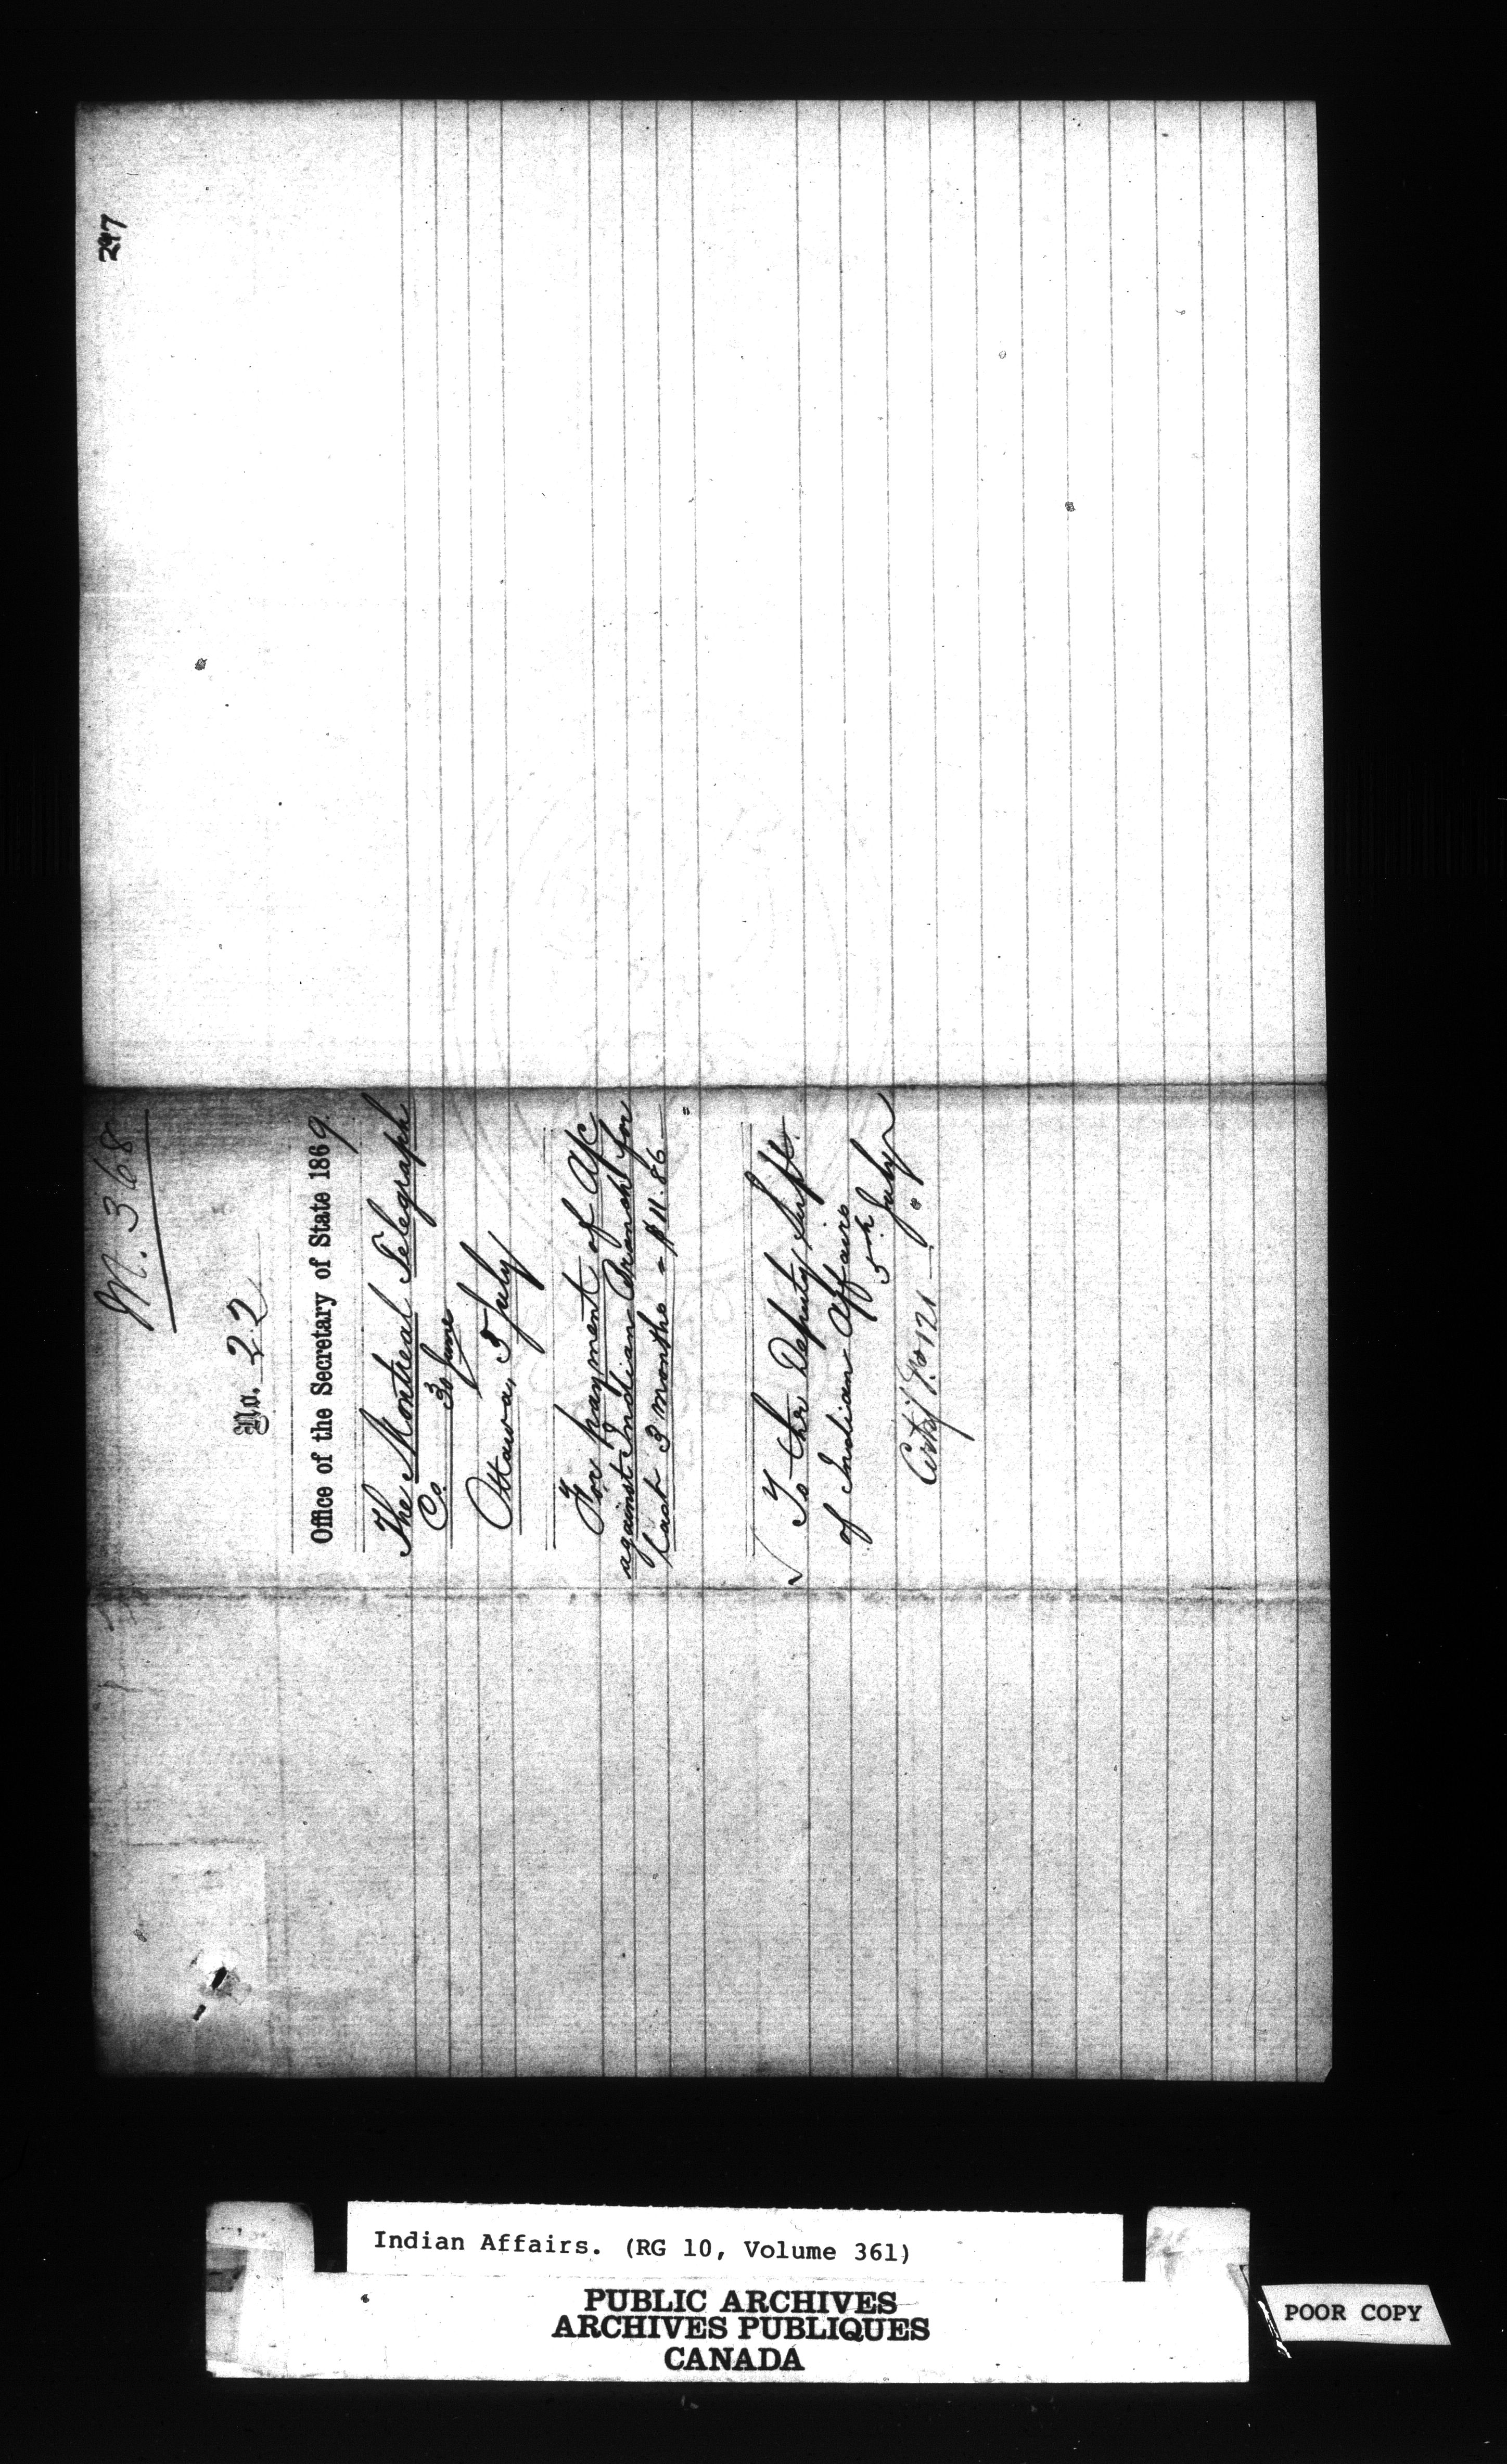 247
M. 368
No. 22
Office of the Secretary of State 1869
The Montreal Telegraph
Co. 30 June
Ottawa, 5 July
For payment of A/c
against Indian Branch for
last 3 months - $11.86
To the Deputy Supt.
of Indian Affairs
5th July
No 121
Indian Affairs. (RG 10, Volume 361)
PUBLIC ARCHIVES
ARCHIVES PUBLIQUES
CANADA
POOR COPY